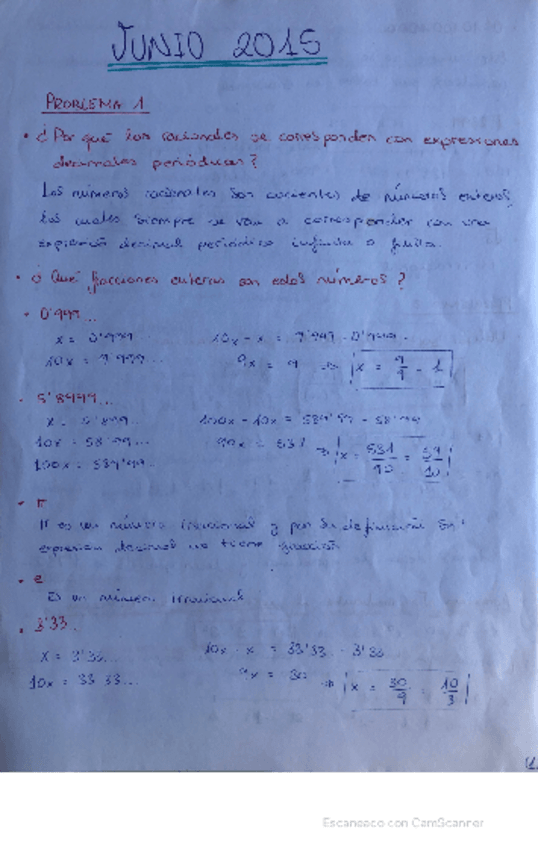 JUNIO 2015
PROBLEMA 1
• ¿Por qué los racionales se corresponden con expresiones
decimales periódicas?
Los números racionales son cocientes de números enteros,
los cuales siempre se van a corresponder con una
expresión decimal periódica infinita o finita.
• ¿Qué fracciones enteras son estos números?
• 0'999...
x = 0'999... 10x - x = 9'999 - 0'999...
10x = 9'999... 9x = 9 ⇒ x = 9/9 = 1
• 5'8999...
x = 5'899... 100x - 10x = 589'99 - 58'99
10x = 58'99... 90x = 531 ⇒ x = 531/90 = 59/10
100x = 589'99...
• π
π es un número irracional y por su definición su
expresión decimal no tiene fracción
• e
Es un número irracional
• 3'33...
x = 3'33... 10x - x = 33'33 - 3'33
10x = 33'33... 9x = 30 ⇒ x = 30/9 = 10/3
Escaneado con CamScanner